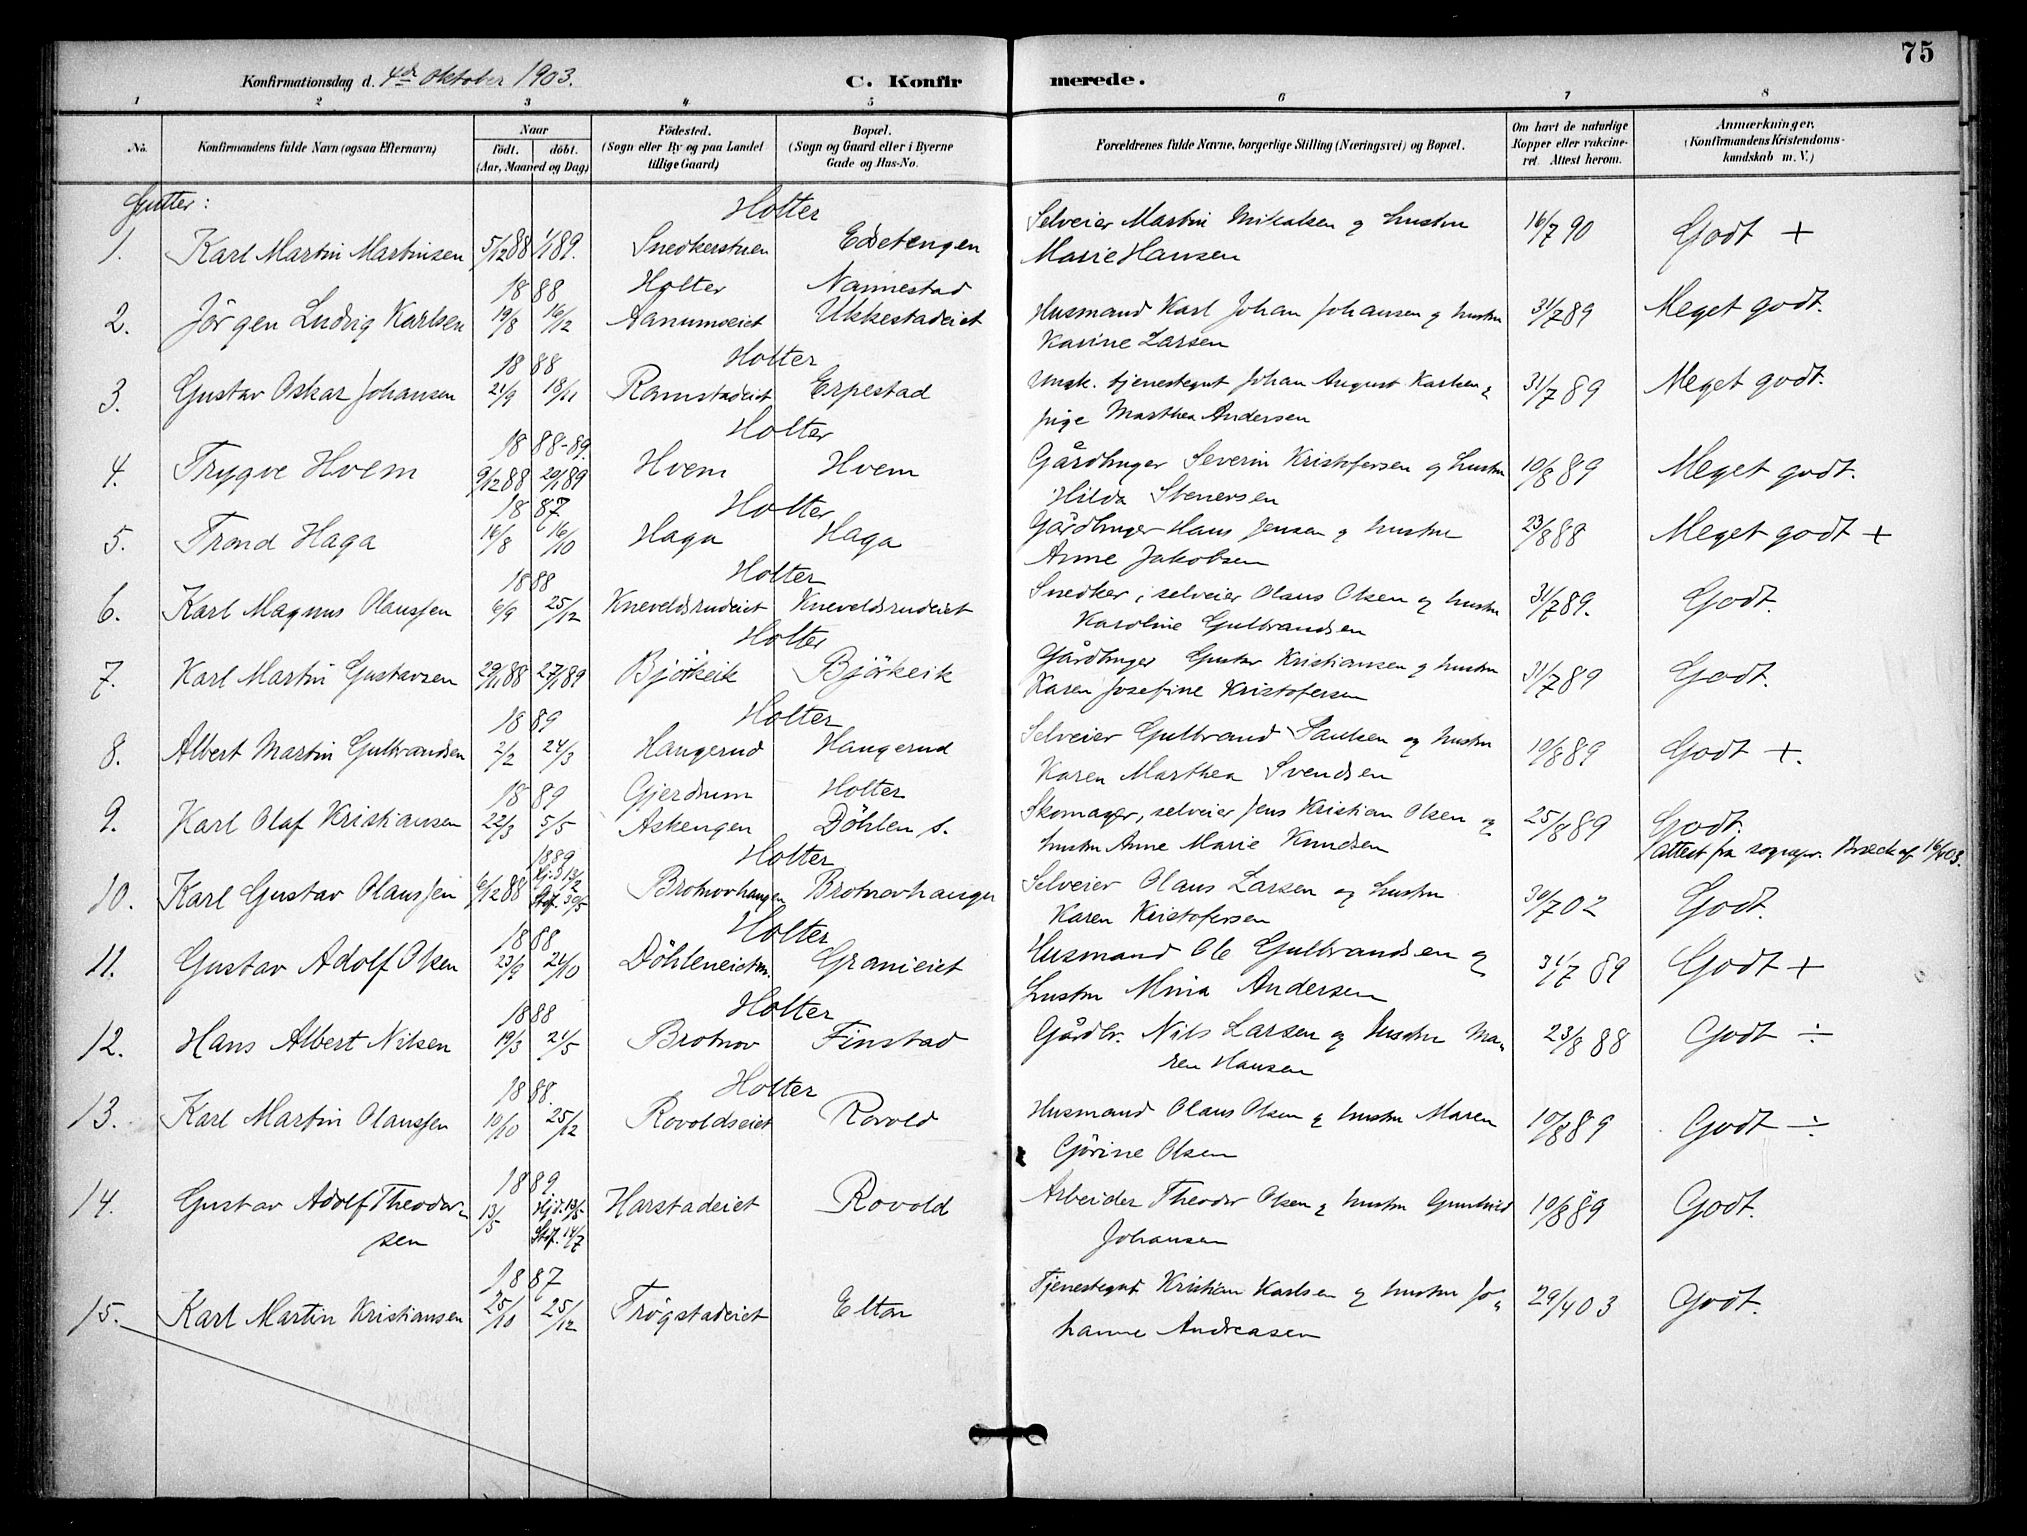 75
Konfirmationsdag d. 4de Oktober 1903. C. Konfir merede.
1 2 3 4 5 6 7 8
No. Konfirmandens fulde Navn (ogsaa Efternavn) Naar Födt. döbt. (Aar, Maaned og Dag) Födested. (Sogn eller By og paa Landet tillige Gaard) Bopæl. (Sogn og Gaard eller i Byerne Gade og Hus-No. Forældrenes fulde Navne, borgerlige Stilling (Næringsvei) og Bopæl. Om havt de naturlige Kopper eller vakcineret. Attest herom. Anmærkninger, (Konfirmandens Kristendomskundskab m. V.)
Gutter:
Holter
Selveier Martin Mikalsen og hustru
1. Karl Martin Martinsen 5/12 88 1/1 89. Snedkerstuen Edetengen 16/7 90 Godt +
Marie Hansen
1888 Holter Nannestad
2. Jörgen Ludvig Karlsen 19/8 16/12 Aanumseiet Ukkestadeiet Husmand Karl Johan Johansen og hustru 31/7 89 Meget godt.
Karine Larsen
1888 Holter
3. Gustav Oskar Johansen 21/9 18/11 Ramstadeiet Erpestad Ungk. tjenestegut Johan August Karlsen & 31/7 89 Meget godt.
pige Marthea Andersen
1888-89. Holter
4. Trygve Hvem 9/12 88 20/1 89 Hvem Hvem Gårdbruger Severin Kristofersen og hustru 10/8 89 Meget godt.
Hilda Stenersen
1887 Holter
5. Trond Haga 16/8 16/10 Haga Haga Gårdbruger Hans Jensen og hustru 23/8 88 Meget godt +
Anne Jakobsen
1888 Holter
6. Karl Magnus Olaussen 6/9 25/12 Kneveldsrudeiet Kneveldsrudeiet Snedker, selveier Olaus Olsen og hustru 31/7 89. Godt.
Karoline Gulbrandsen
Holter
7. Karl Martin Gustavsen 29/11 88 27/1 89 Björkeik Björkeik Gårdbruger Gustav Kristiansen og hustru 31/7 89 Godt.
Karen Josefine Kristofersen
1889 Holter
8. Albert Martin Gulbrandsen 2/2 24/3 Haugerud Haugerud Selveier Gulbrand Paulsen og hustru 10/8 89 Godt +.
Karen Marthea Svendsen
1889 Gjerdrum Holter
9. Karl Olaf Kristiansen 22/3 5/5 Askengen Döhlen s. Skomager, selveier Jens Kristian Olsen og 25/8 89 Godt.
hustru Anne Marie Knudsen attest fra sognepr. af 16/4 03.
1889 Holter
10. Karl Gustav Olaussen 6/12 88 Hj.d. 13/2 Stf. 30/5 Brotnovhaugen Brotnovhaugen Selveier Olaus Larsen og hustru 30/7 02 Godt.
Karen Kristofersen
1888 Holter
11. Gustav Adolf Olsen 23/9 21/10 Döhleneiet Granieiet Husmand Ole Gulbrandsen og 31/7 89 Godt +
hustru Mina Andersen
1888 Holter
12. Hans Albert Nilsen 19/3 21/5 Brotnov Finstad Gårdbr. Nils Larsen og hustru Ma- 23/8 88 Godt ÷
ren Hansen
1888. Holter
13. Karl Martin Olaussen 10/10 25/12 Rovoldseiet Rovold Husmand Olaus Olsen & hustru Maren 10/8 89 Godt ÷
Gjörine Olsen
1889
14. Gustav Adolf Theodor- 13/5 Hj.d. 19/5 Stf. 14/7 Harstadeiet Rovold Arbeider Theodor Olsen & hustru Gunhild 10/8 89 Godt.
sen Johansen
1887
15. Karl Martin Kristiansen 25/10 25/12 Trögstadeiet Elton Tjenestegut Kristian Karlsen og hustru Jo- 29/4 03 Godt.
hanne Andreasen